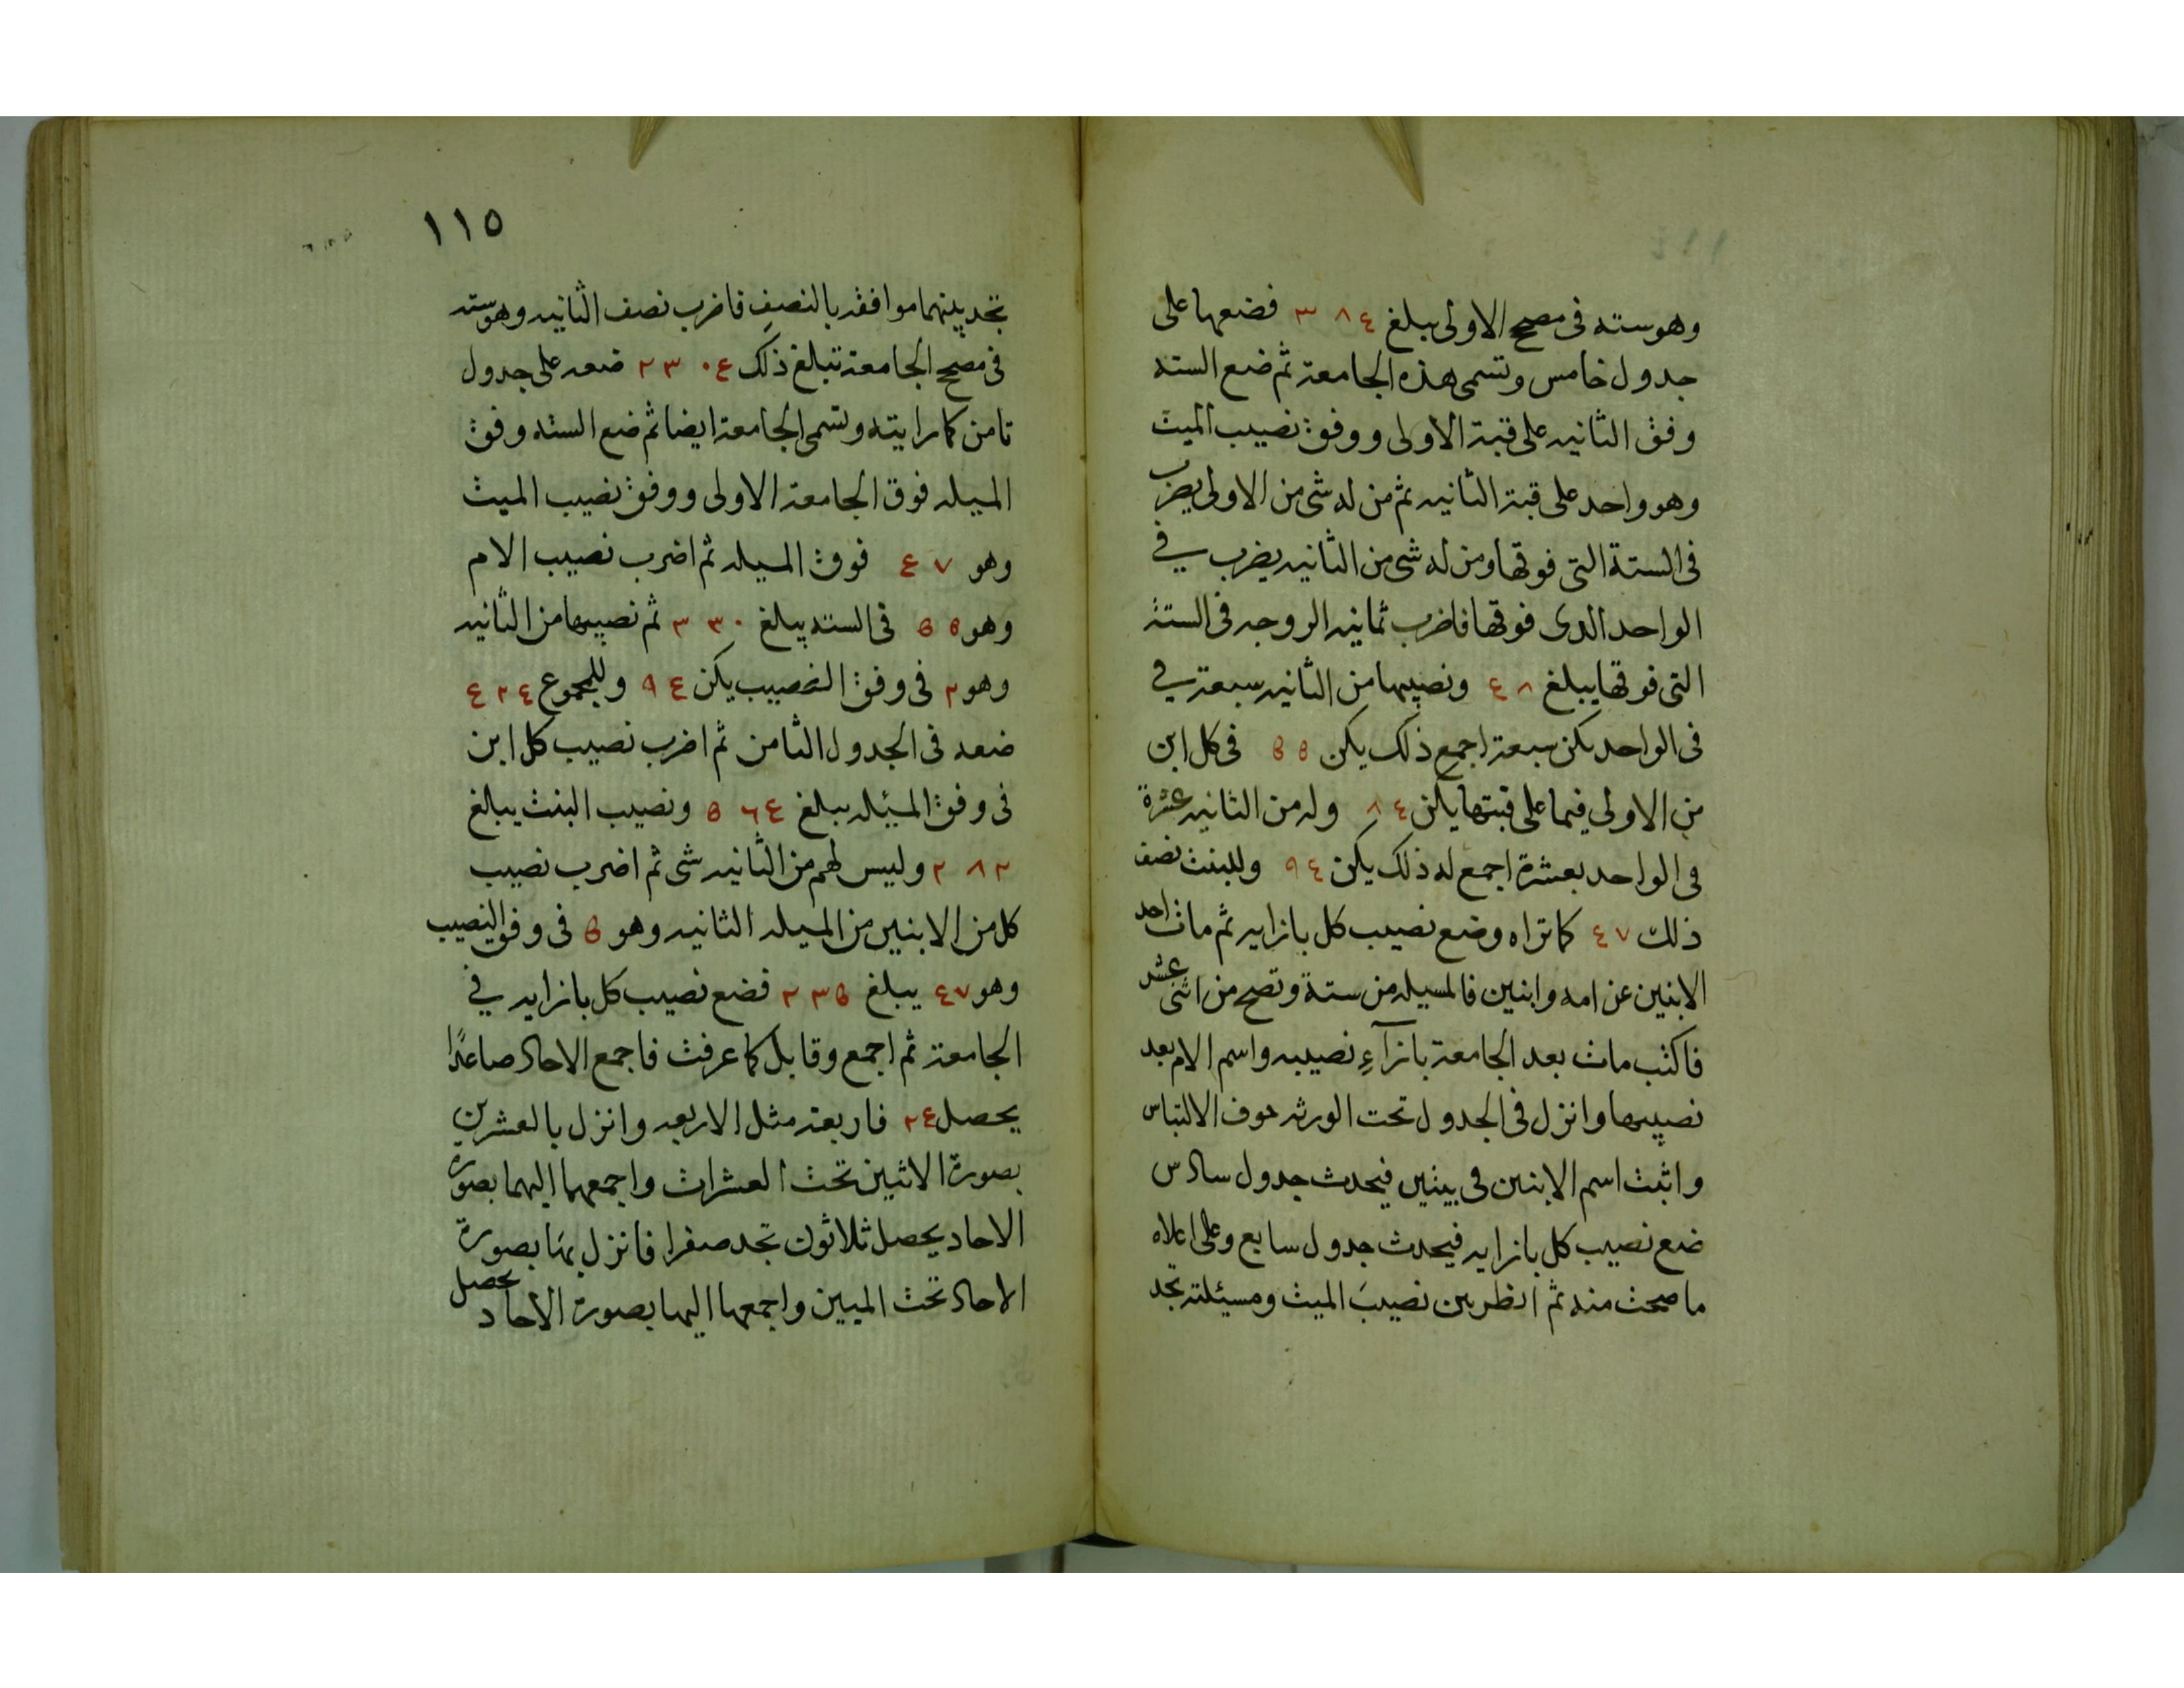 وهو سته فى مصحح الاولى يبلغ ٣٨٤ فضعها على
جدول خامس وتسمى هذه الجامعة ثم ضع السته
وفق الثانيه على قبة الاولى ووفق نصيب الميت
وهو واحد على قبة الثانيه ثم من له شى من الاولى يضرب
فى الستة التى فوقها ومن له شى من الثانيه يضرب في
الواحد الدى فوقها فاضرب ثمانيه الزوجه فى الستة
التى فوقها يبلغ ٤٨ ونصيبها من الثانيه سبعة في
فى الواحد يكن سبعة اجمع ذلك يكن ٥٥ فى كل ابن
من الاولى فيما على قبتها يكن ٨٤ وله من الثانيه عشرة
فى الواحد بعشرة اجمع له ذلك يكن ٩٤ وللبنت نصف
ذلك ٤٧ كما تراه وضع نصيب كل بازايه ثم مات احد
الابنين عن امه وابنين فالمسيله من ستة وتصح من اثنى عشر
فاكتب مات بعد الجامعة بازآءِ نصيبه واسم الام بعد
نصيبها وانزل فى الجدول تحت الورثه خوف الالتباس
واثبت اسم الابنين فى بيتين فيحدث جدول سادس
ضع نصيب كل بازايه فيحدث جدول سابع وعلى اعلاه
ما صحت منه ثم انظر بين نصيبَ الميت ومسيئلته تجد
١١٥
تجد بينهما موافقه بالنصف فاضرب نصف الثانيه وهو سته
فى مصحح الجامعة تبلغ ذلك ٢٣٠٤ ضعه على جدول
ثامن كما رايته وتسمى الجامعة ايضا ثم ضع السته وفق
الميله فوق الجامعة الاولى ووفق نصيب الميت
وهو ٤٧ فوق الميله ثم اضرب نصيب الام
وهو ٥٥ فى السته يبلغ ٣٣٠ ثم نصيبها من الثانيه
وهو ٢ فى وفق النصيب يكن ٩٤ وللمجموع ٤٢٤
ضعه فى الجدول الثامن ثم اضرب نصيب كل ابن
فى وفق المسئله يبلغ ٥٦٤ ونصيب البنت يبلغ
٢٨٢ وليس لهم من الثانيه شى ثم اضرب نصيب
كل من الابنين من الميله الثانيه وهو ٥ فى وفق النصيب
وهو ٤٧ يبلغ ٢٣٥ فضع نصيب كل بازايه في
الجامعة ثم اجمع وقابل كما عرفت فاجمع الاحاد صاعدًا
يحصل ٢٤ فاربعة مثل الاربعه وانزل بالعشرين
بصورة الاثنين تحت العشرات واجمعهما اليهما بصورة
الاحاد يحصل ثلاثون تجد صفرا فانزل بها بصورة
الاحاد تحت الميين واجمعها اليها بصورة الاحاد يحصل